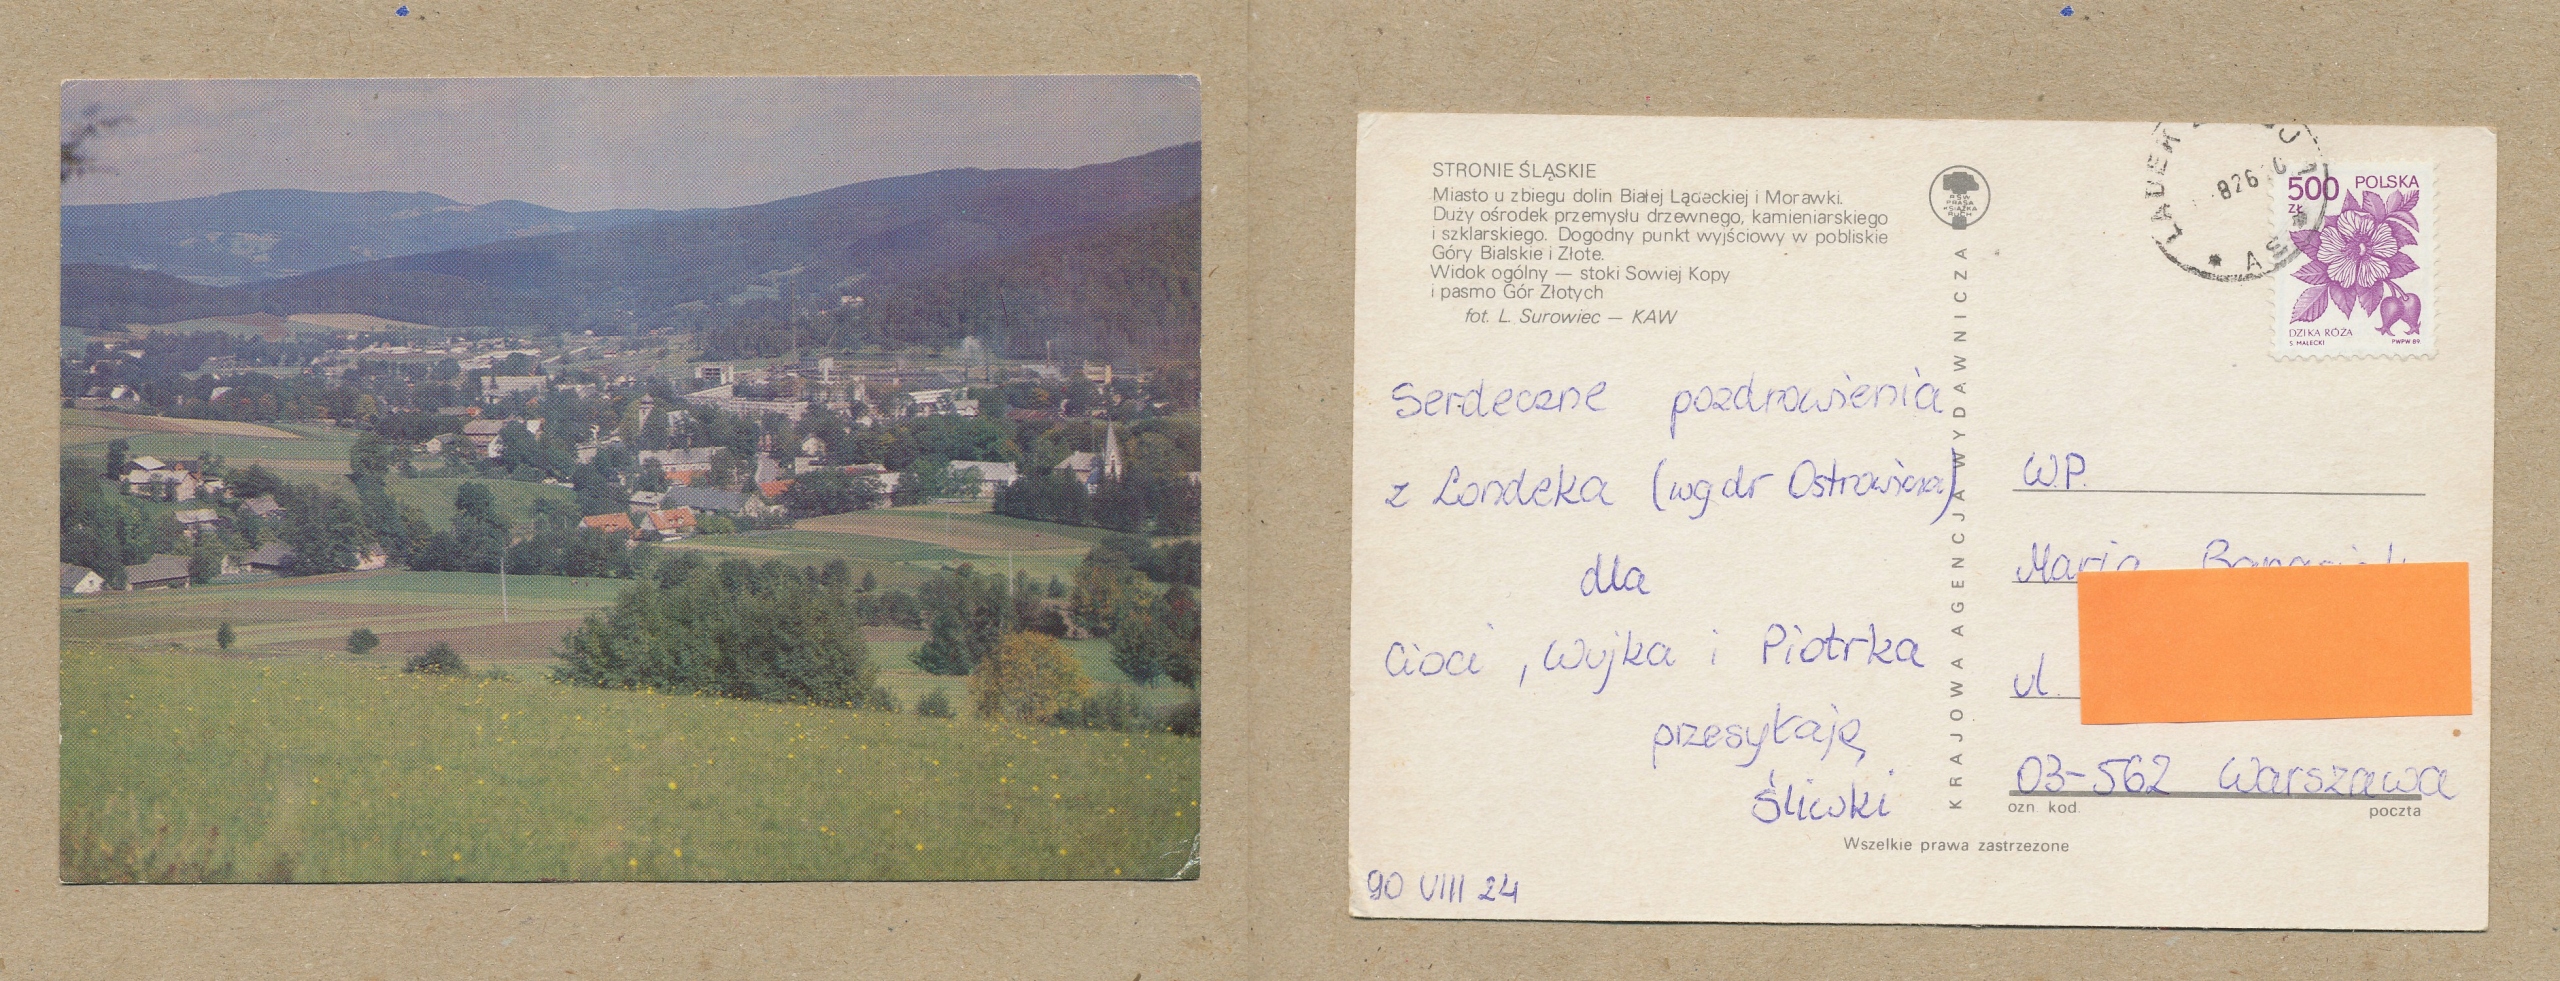 STRONIE ŚLĄSKIE
Miasto u zbiegu dolin Białej Lądeckiej i Morawki.
Duży ośrodek przemysłu drzewnego, kamieniarskiego
i szklarskiego. Dogodny punkt wyjściowy w pobliskie
Góry Bialskie i Złote.
Widok ogólny — stoki Sowiej Kopy
i pasmo Gór Złotych
fot. L. Surowiec — KAW
Serdeczne pozdrowienia
z Londeka (wg dr Ostrowicza)
dla
Cioci, Wujka i Piotrka
przesyłają
Śliwki
90 VIII 24
RSW
PRASA
KSIĄŻKA
RUCH
KRAJOWA AGENCJA WYDAWNICZA
Wszelkie prawa zastrzezone
LĄDEK
A
826
500 POLSKA
ZŁ
DZIKA RÓŻA
S. MAŁECKI PWPW 89
W.P.
Maria
ul.
03-562 Warszawa
ozn. kod. poczta